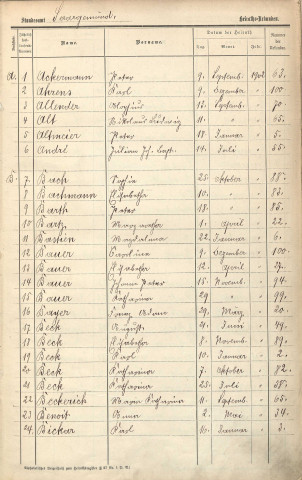 Standesamt Saargemünd. Heiraths-Urkunden.
Name. Vorname. Datum der Heirath Nummer
Tag. Monat. Jahr.
A. 1 Ackermann Peter 9. Septemb. 1902 63.
2 Ahrens Karl 9. Dezember " 100.
3 Allender Aloysius 17. Septemb. " 70.
4 Alt Nikolaus Ludwig 11. " " 65.
5 Altmeier Peter 18. Januar " 5.
6 André Julian Jh. Bapt. 14. Juli " 55.
B. 7. Bach Sophie 25. Oktober " 85.
8 Bachmann Elisabetha 10. " " 83.
9 Barth Peter 18. " " 85.
10 Barth Margaretha 1. April " 22.
11 Bastien Magdalena 22. Januar " 6.
12 Bauer Karolina 9. Dezember " 100.
13 Bauer Elisabetha 12. April " 27.
14 Bauer Johann Peter 15. Novemb. " 94.
15 Bauer Katharina 29 " " 99.
16 Bayer Franz Adam 29. März " 20.
17 Beck August 21. Juni " 49.
18 Beck Elisabetha 8. Novemb. " 89.
19 Beck Karl 10. Januar " 2.
20 Beck Katharina 7. Oktober " 82.
21 Beck Katharina 25. Juli " 58.
22 Beckerich Maria Katharina 11. Septemb. " 65.
23 Benoit Anna 2. Mai " 34.
24. Bickar Karl 10. Januar " 3.